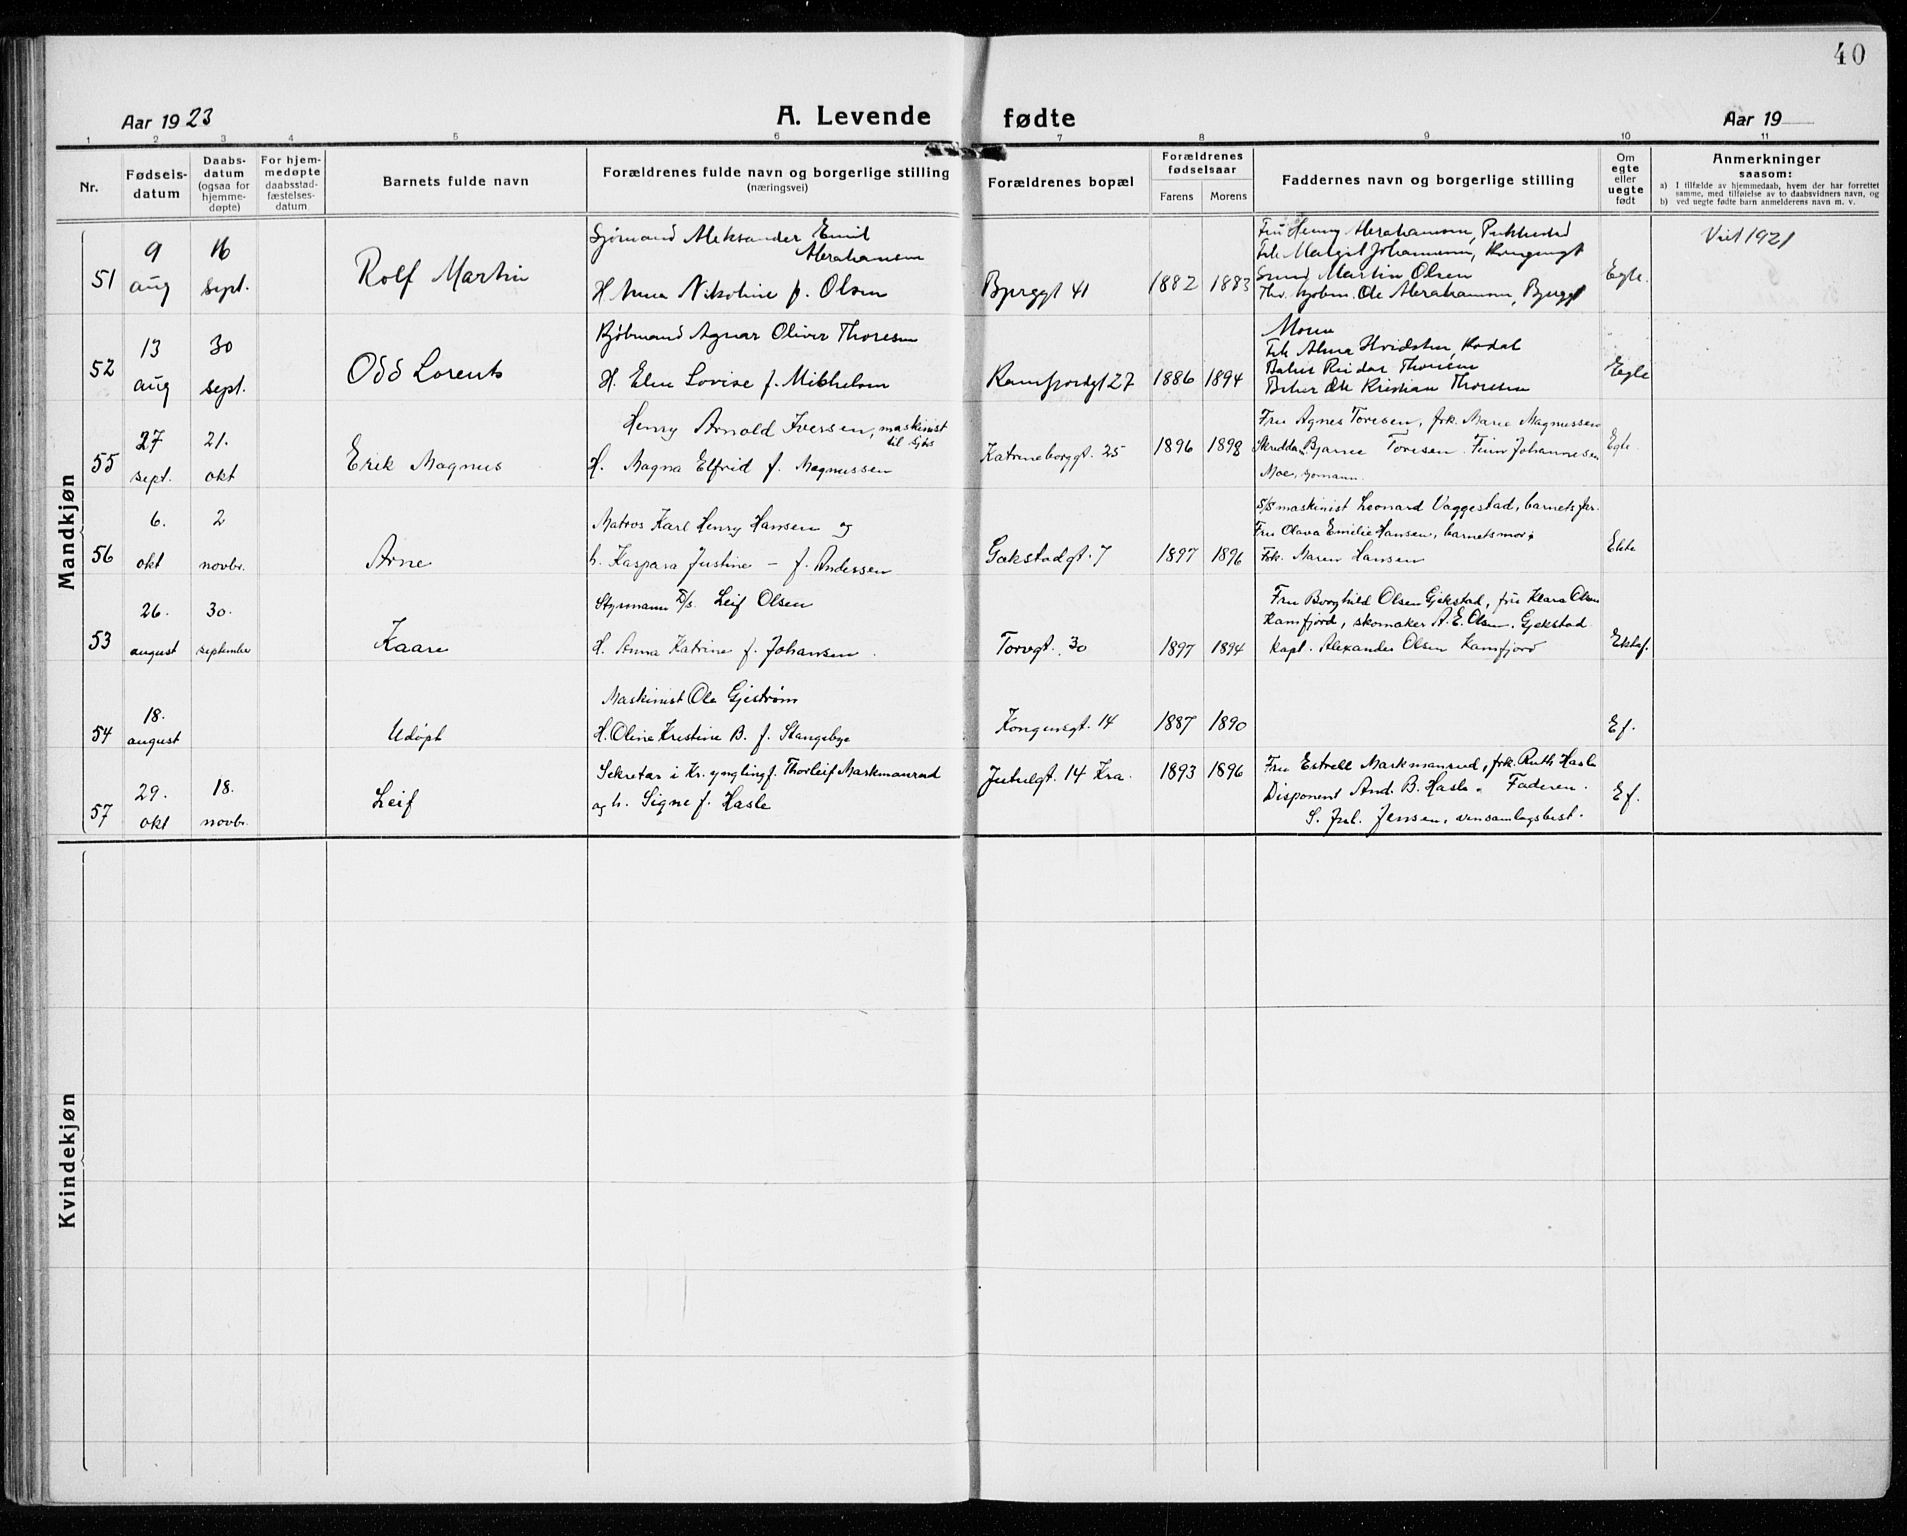 40
Aar 1923
A. Levende fødte
Aar 19
1 2 3 4 5 6 7 8 9 10 11
Nr.
Fødsels-
datum
Daabs-
datum
(ogsaa for
hjemme-
døpte)
For hjem-
medøpte
daabsstad-
fæstelses-
datum
Barnets fulde navn
Forældrenes fulde navn og borgerlige stilling
(næringsvei)
Forældrenes bopæl
Forældrenes
fødselsaar
Farens Morens
Faddernes navn og borgerlige stilling
Om
egte
eller
uegte
født
Anmerkninger
saasom:
a) I tilfælde av hjemmedaab, hvem der har forrettet
samme, med tilføielse av to daabsvidners navn, og
b) ved uegte fødte barn anmelderens navn m. v.
Mandkjøn
51
9
aug
16
sept.
Rolf Martin
Sjømand Aleksander Emil
Abrahamsen
H Anna Nikoline f. Olsen
41
1882 1883
Fru Henny Abrahamsen,
Frk Margit Johannesen, Kongensgt
Martin Olsen
Ole Abrahamsen,
Egte.
Viet 1921
52
13
aug
30
sept.
Odd Lorents
Kjøbmand Agnar Oliver Thoresen
H. Elen Lovise f. Mikkelsen
Ramfjordgt 27
1886 1894
Moren
Frk Alma Hvidsten, Kodal
Reidar Thoresen
Ole Kristian Thoresen
Egte
55
27
sept.
21.
okt
Erik Magnus
Henry Arnold Iversen, maskinist
til sjøs
H. Magna Elfrid f. Magnussen
Katrineborggt. 25
1896 1898
Fru Agnes Toresen, frk. Marie Magnussen
Skrædder Bjarne Toresen. Finn Johannesen
Moe, sjømann.
Egte.
56
6.
okt
2
novbr.
Arne
Matros Karl Henry Hansen og
h. Kaspara Justine – f. Andersen
Gokstadgt. 7
1897 1896
S/S maskinist Leonard Vaggestad, barnets far.
Fru Olava Emilie Hansen, barnets mor.
Frk. Maren Hansen
Ekte
53
26.
august
30.
september
Kaare
Styrmann D/s. Leif Olsen
H. Anna Katrine f. Johansen.
Torvgt. 30
1897 1894
Fru Borghild Olsen Gjekstad, fru Klara Olsen
Kamfjord, skomaker A. E. Olsen, Gjekstad
Kapt. Alexander Olsen Kamfjord
Ektef.
54
18.
august
Udøpt
Maskinist Ole Gjestrøm
H. Oline Kristine B. f. Stangebye
Kongensgt. 14
1887 1890
Ef.
57
29.
okt
18.
novbr.
Leif
Sekretær i Kr. ynglingf. Thorleif Markmanrud
og h. Signe f. Hasle
Jutulgt. 14 Kra.
1893 1896
Fru Estrell Markmanrud, frk. Ruth Hasle
Disponent And. B. Hasle. Faderen.
S. Jensen,
Ef.
Kvindekjøn